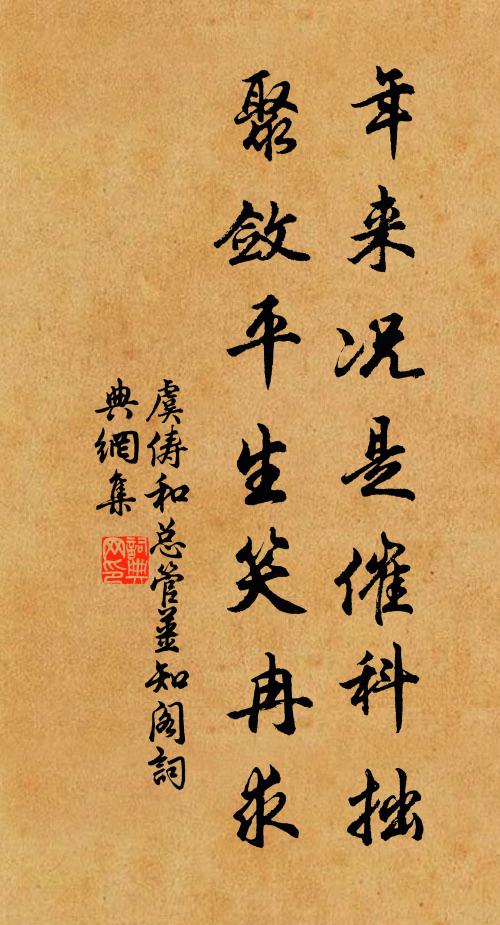 年来况是催科拙
聚敛平生笑冉求
虞俦和总管姜知阁詞
典網集
詞典
网印